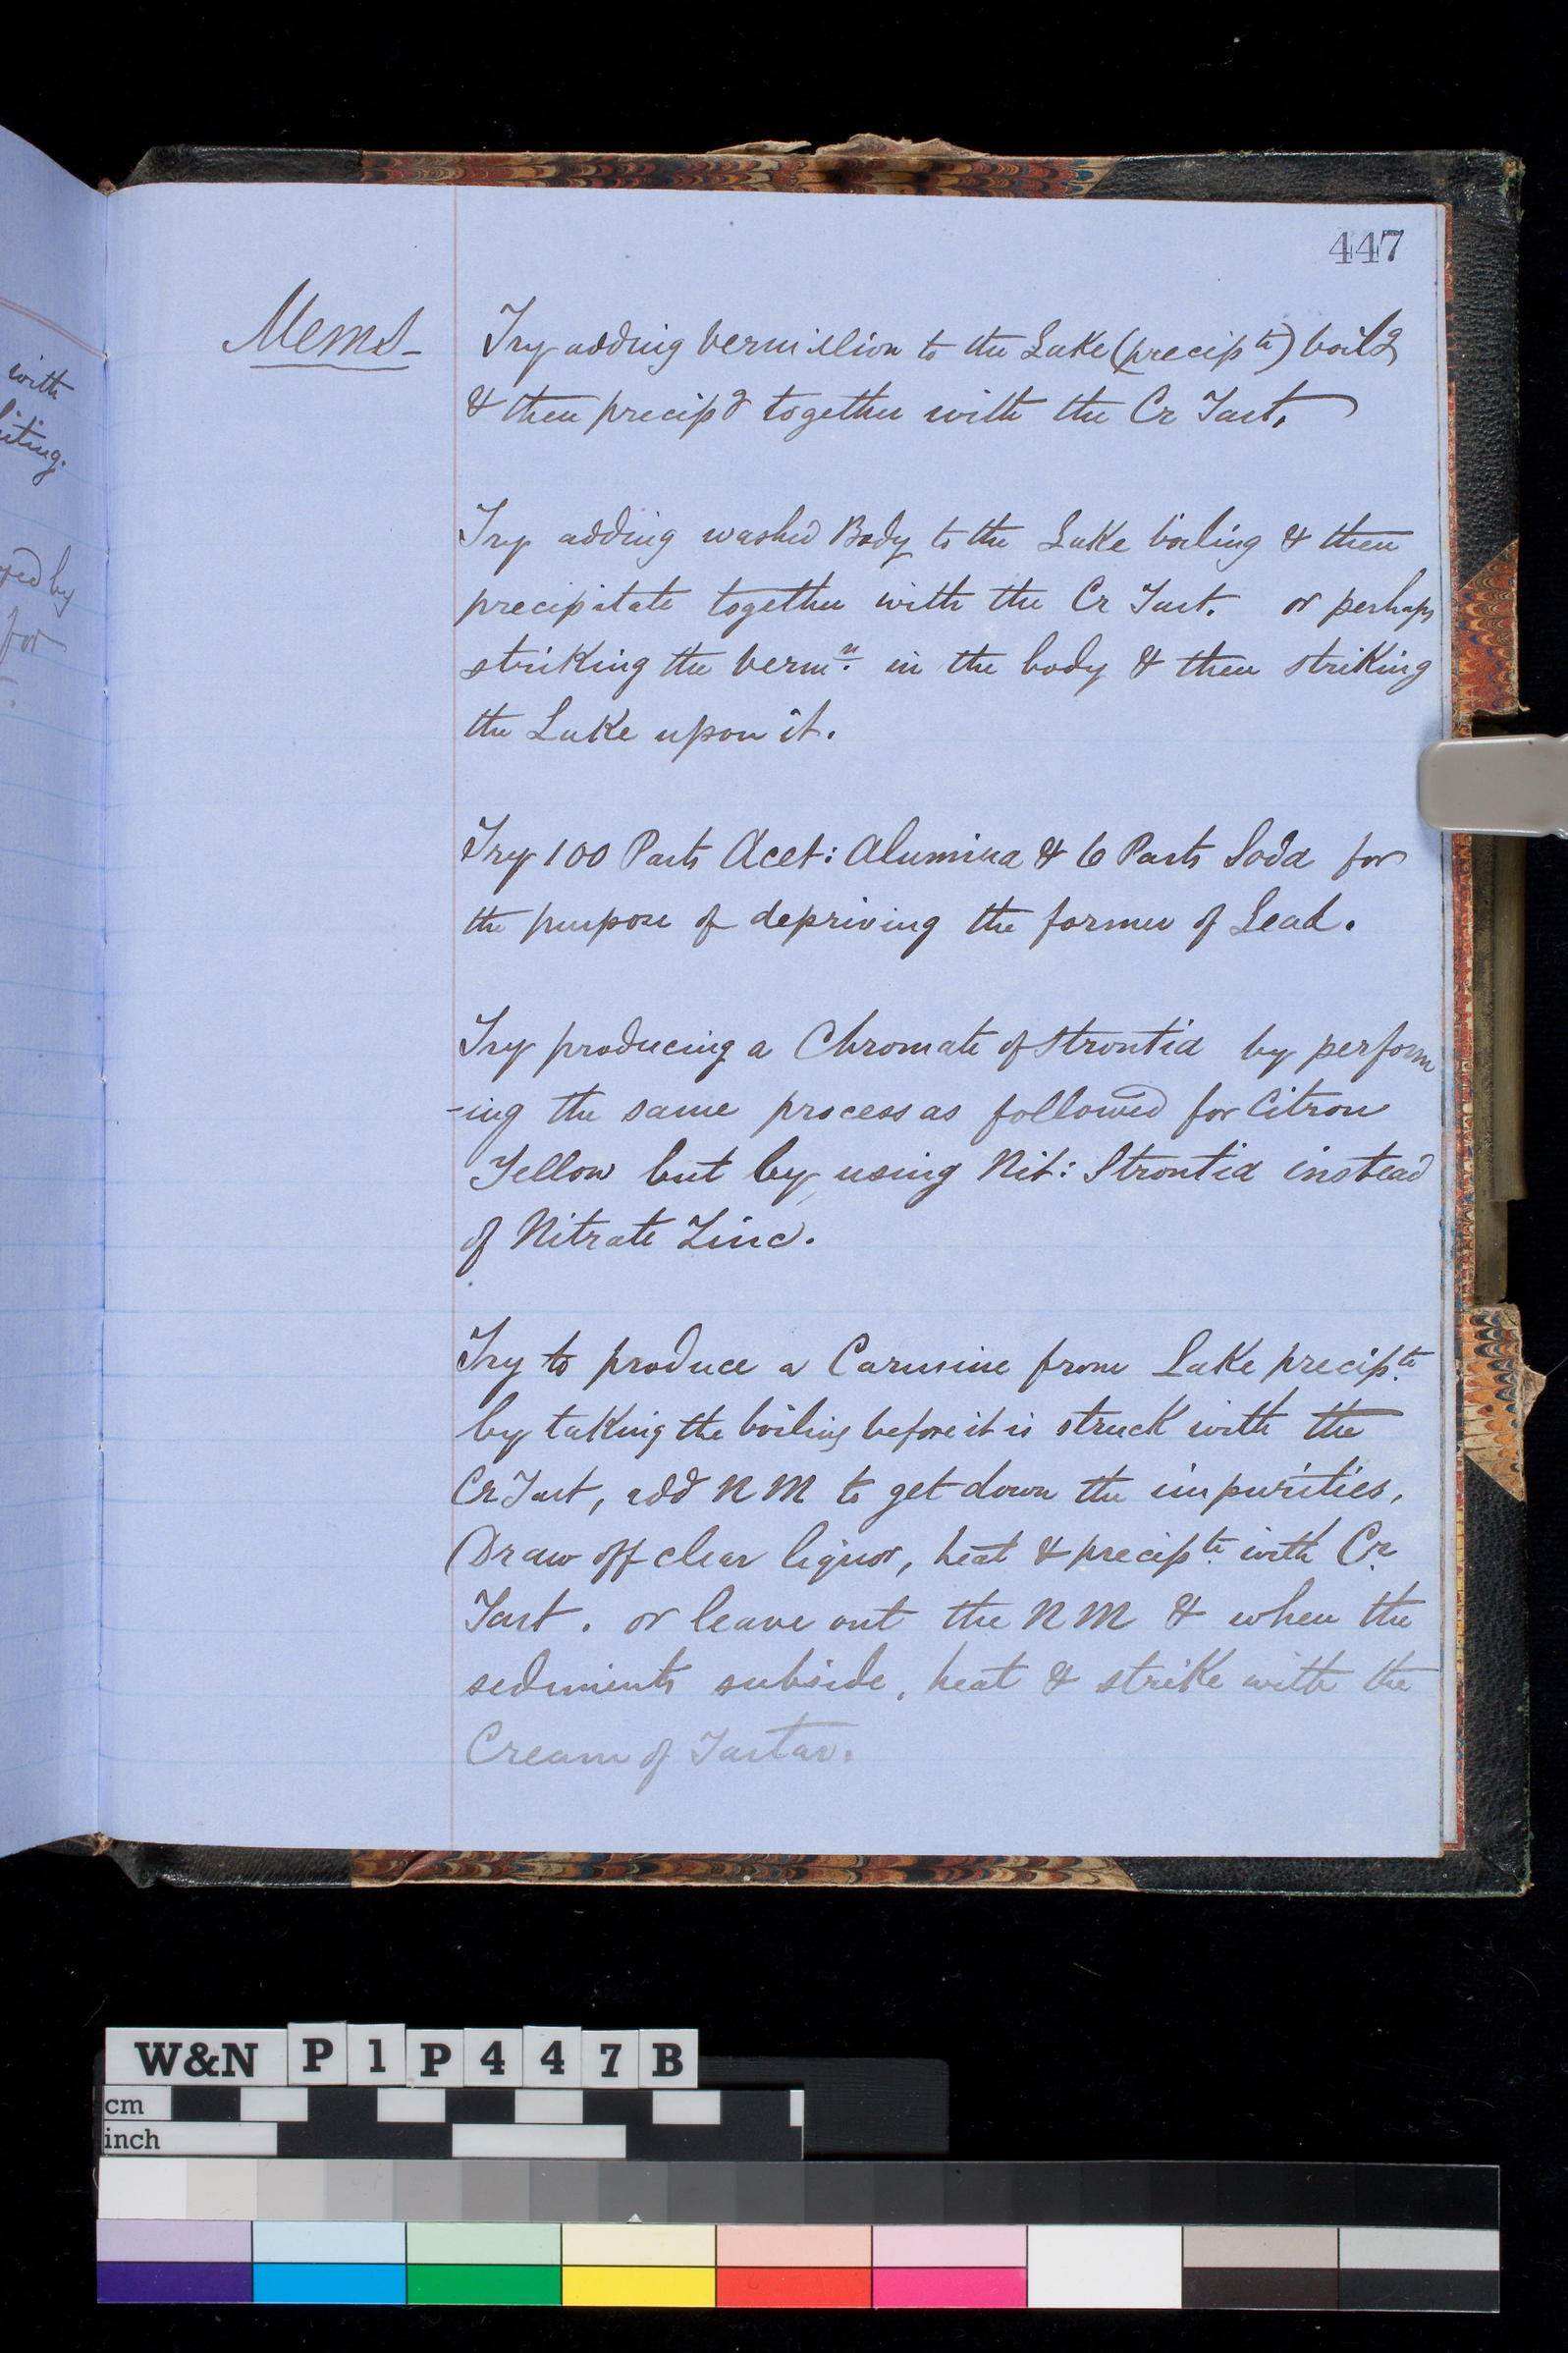 447
with
iting.
yed by
for
Mems_
Try adding Vermillion to the Lake (precipte) boilg
& then precipg together with the Cr Tart.
Try adding washed Body to the Lake boiling & then
precipitate together with the Cr Tart. or perhaps
striking the Vermn. in the body & then striking
the Lake upon it.
Try 100 Parts Acet: Alumina & 6 Parts Soda for
the purpose of depriving the former of Lead.
Try producing a Chromate of Strontia by perform
-ing the same process as followed for Citron
Yellow but by using Nit: Strontia instead
of Nitrate Zinc.
Try to produce a Carmine from Lake precipte.
by taking the boiling before it is struck with the
Cr Tart, add N M to get down the impurities,
Draw off clear liquor, heat & precipte. with Cr.
Tart. or leave out the N M & when the
sediments subside, heat & strike with the
Cream of Tartar.
W&N P1P447B
cm
inch